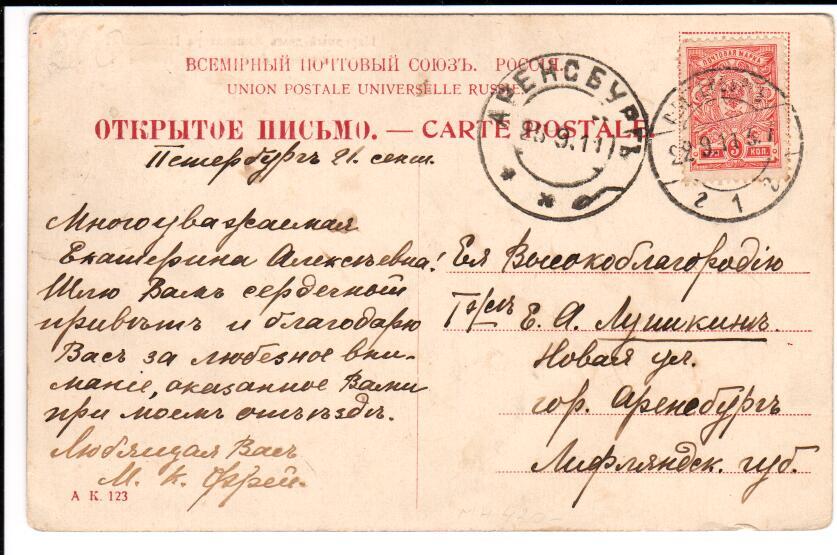 ВСЕМІРНЫЙ ПОЧТОВЫЙ СОЮЗЪ. РОССІЯ.
UNION POSTALE UNIVERSELLE RUSSIE
ОТКРЫТОЕ ПИСЬМО. — CARTE POSTALE.
ПОЧТОВАЯ МАРКА
3 КОП.
АРЕНСБУРГЪ
9.11
22.9.11
2 1 2
Петербургъ 21 сент.
Многоуважаемая
Екатерина Алексѣевна!
Шлю Вамъ сердечный
привѣтъ и благодарю
Васъ за любезное вни-
маніе, оказанное Вами
при моемъ отъѣздѣ.
Любящая Васъ
М. К. Фрей.
Ея Высокоблагородію
Г-жѣ Е. А. Лушкинъ.
Новая ул.
гор. Аренсбургъ
Лифляндск. губ.
А К. 123